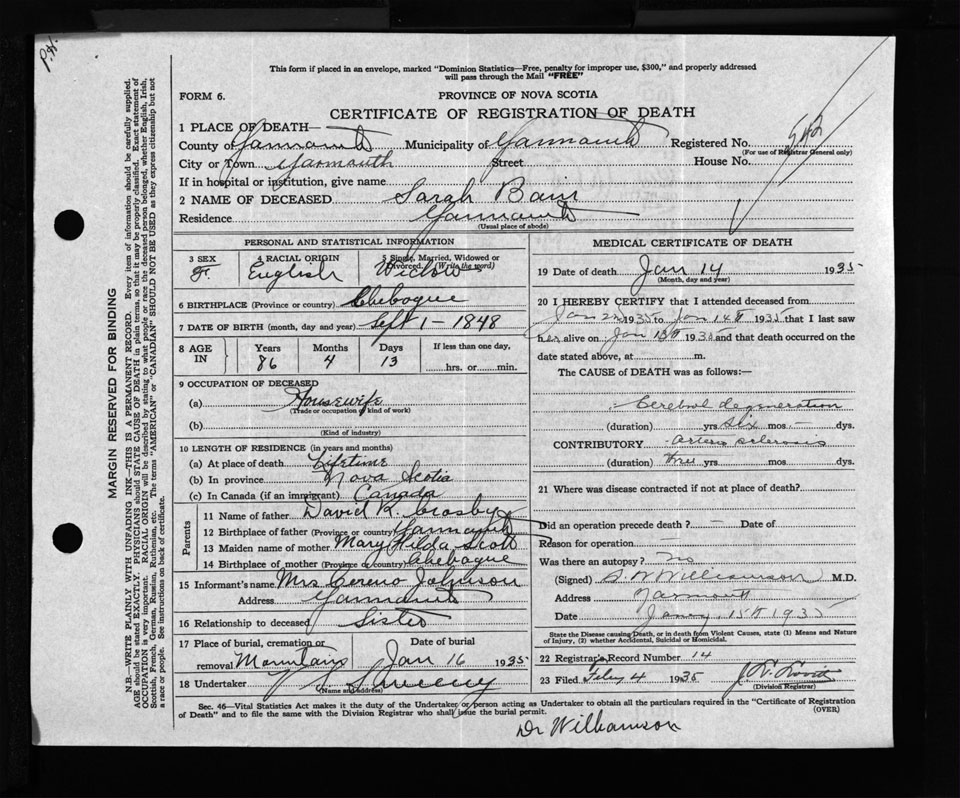 P.H.
This form if placed in an envelope, marked "Dominion Statistics—Free, penalty for improper use, $300," and properly addressed
will pass through the Mail "FREE"
FORM 6.
PROVINCE OF NOVA SCOTIA
CERTIFICATE OF REGISTRATION OF DEATH
1 PLACE OF DEATH—
County of Yarmouth Municipality of Yarmouth Registered No. 542
(For use of Registrar General only)
City or Town Yarmouth Street House No.
If in hospital or institution, give name
2 NAME OF DECEASED Sarah Bain
Residence Yarmouth
(Usual place of abode)
PERSONAL AND STATISTICAL INFORMATION
3 SEX F. 4 RACIAL ORIGIN English 5 Single, Married, Widowed or Divorced. (Write the word) Widow
6 BIRTHPLACE (Province or country) Chebogue
7 DATE OF BIRTH (month, day and year) Sept 1 - 1848
8 AGE IN Years 86 Months 4 Days 13 If less than one day, hrs. or min.
9 OCCUPATION OF DECEASED
(a) Housewife
(Trade or occupation / kind of work)
(b)
(Kind of industry)
10 LENGTH OF RESIDENCE (in years and months)
(a) At place of death Lifetime
(b) In province Nova Scotia
(c) In Canada (if an immigrant) Canada
Parents
11 Name of father David K. Crosby
12 Birthplace of father (Province or country) Yarmouth
13 Maiden name of mother Mary Hilda Scott
14 Birthplace of mother (Province or country) Chebogue
15 Informant's name Mrs Cereno Johnson
Address Yarmouth
16 Relationship to deceased Sister
17 Place of burial, cremation or removal Mountain Date of burial Jan 16 1935
18 Undertaker Sweeny
(Name and address)
MEDICAL CERTIFICATE OF DEATH
19 Date of death Jan 14 1935
(Month, day and year)
20 I HEREBY CERTIFY that I attended deceased from
Jan 2nd 1935 to Jan 14th 1935 that I last saw
her alive on Jan 13th 1935 and that death occurred on the
date stated above, at m.
The CAUSE of DEATH was as follows:—
Cerebral degeneration
(duration) yrs six mos — dys.
CONTRIBUTORY Arterio sclerosis
(duration) three yrs mos. dys.
21 Where was disease contracted if not at place of death?
Did an operation precede death? — Date of
Reason for operation —
Was there an autopsy? No
(Signed) S. W. Williamson M.D.
Address Yarmouth
Date Jany. 15th 1935
State the Disease causing Death, or in death from Violent Causes, state (1) Means and Nature
of Injury, (2) whether Accidental, Suicidal or Homicidal.
22 Registrar's Record Number 14
23 Filed Feby 4 1935
(Division Registrar)
Sec. 46—Vital Statistics Act makes it the duty of the Undertaker or person acting as Undertaker to obtain all the particulars required in the "Certificate of Registration
of Death" and to file the same with the Division Registrar who shall issue the burial permit. (OVER)
Dr Williamson
MARGIN RESERVED FOR BINDING
N.B.—WRITE PLAINLY WITH UNFADING INK—THIS IS A PERMANENT RECORD. Every item of information should be carefully supplied.
AGE should be stated EXACTLY. PHYSICIANS should STATE CAUSE OF DEATH in plain terms, so that it may be properly classified. Exact statement of
OCCUPATION is very important. RACIAL ORIGIN will be described by stating to what people or race the deceased person belonged, whether English, Irish,
Scottish, French, German, Russian, Ruthenian, etc. The terms "AMERICAN" or "CANADIAN" SHOULD NOT BE USED as they express citizenship but not
a race or people. See instructions on back of certificate.